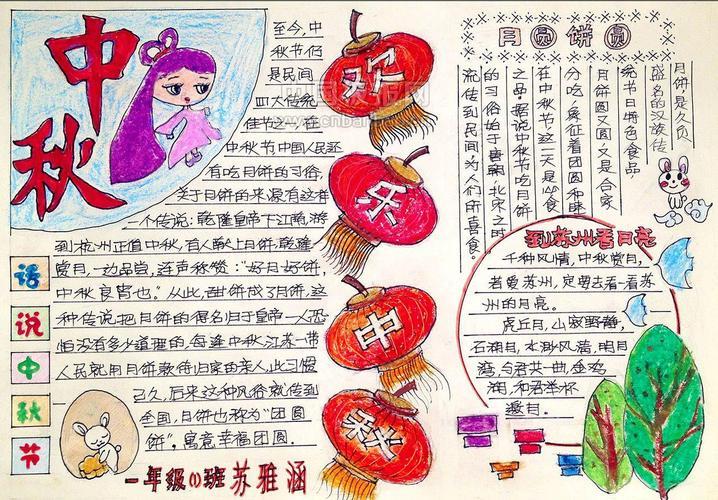 中秋
至今,中
秋节仍
是民间
四大传统
佳节之一,在
中秋节中国人民还
有吃月饼的习俗,
关于月饼的来源有这样
一个传说:乾隆皇帝下江南,游
到杭州正值中秋,有人献上月饼,乾隆
赏月,一边品尝,连声称赞:“好月好饼,
中秋良宵也”。从此,甜饼成了月饼,这
种传说把月饼的得名归于皇帝一人恐
怕没有多少道理的,每逢中秋,江苏一带
人民就用月饼款待归家的亲人,此习惯
已久,后来这种风俗就传到
全国,月饼也称为“团圆
饼”。寓意幸福团圆。
话说中秋节
一年级(1)班 苏雅涵
欢乐中秋
月圆饼圆
月饼是久负
盛名的汉族传
统节日特色食品
月饼圆又圆,又是合家
分吃,象征着团圆和睦
在中秋节这一天是必食
之品。据说中秋节吃月饼
的习俗始于唐朝,北宋之时
流传到民间,为人们所喜食。
到苏州看月亮
千种风情,中秋赏月,
若爱苏州,定要去看一看苏
州的月亮。
虎丘月,山寂野静,
石湖月,水渺风清,明月
湾,与君共一曲,金鸡
湖,和君举杯
邀月。